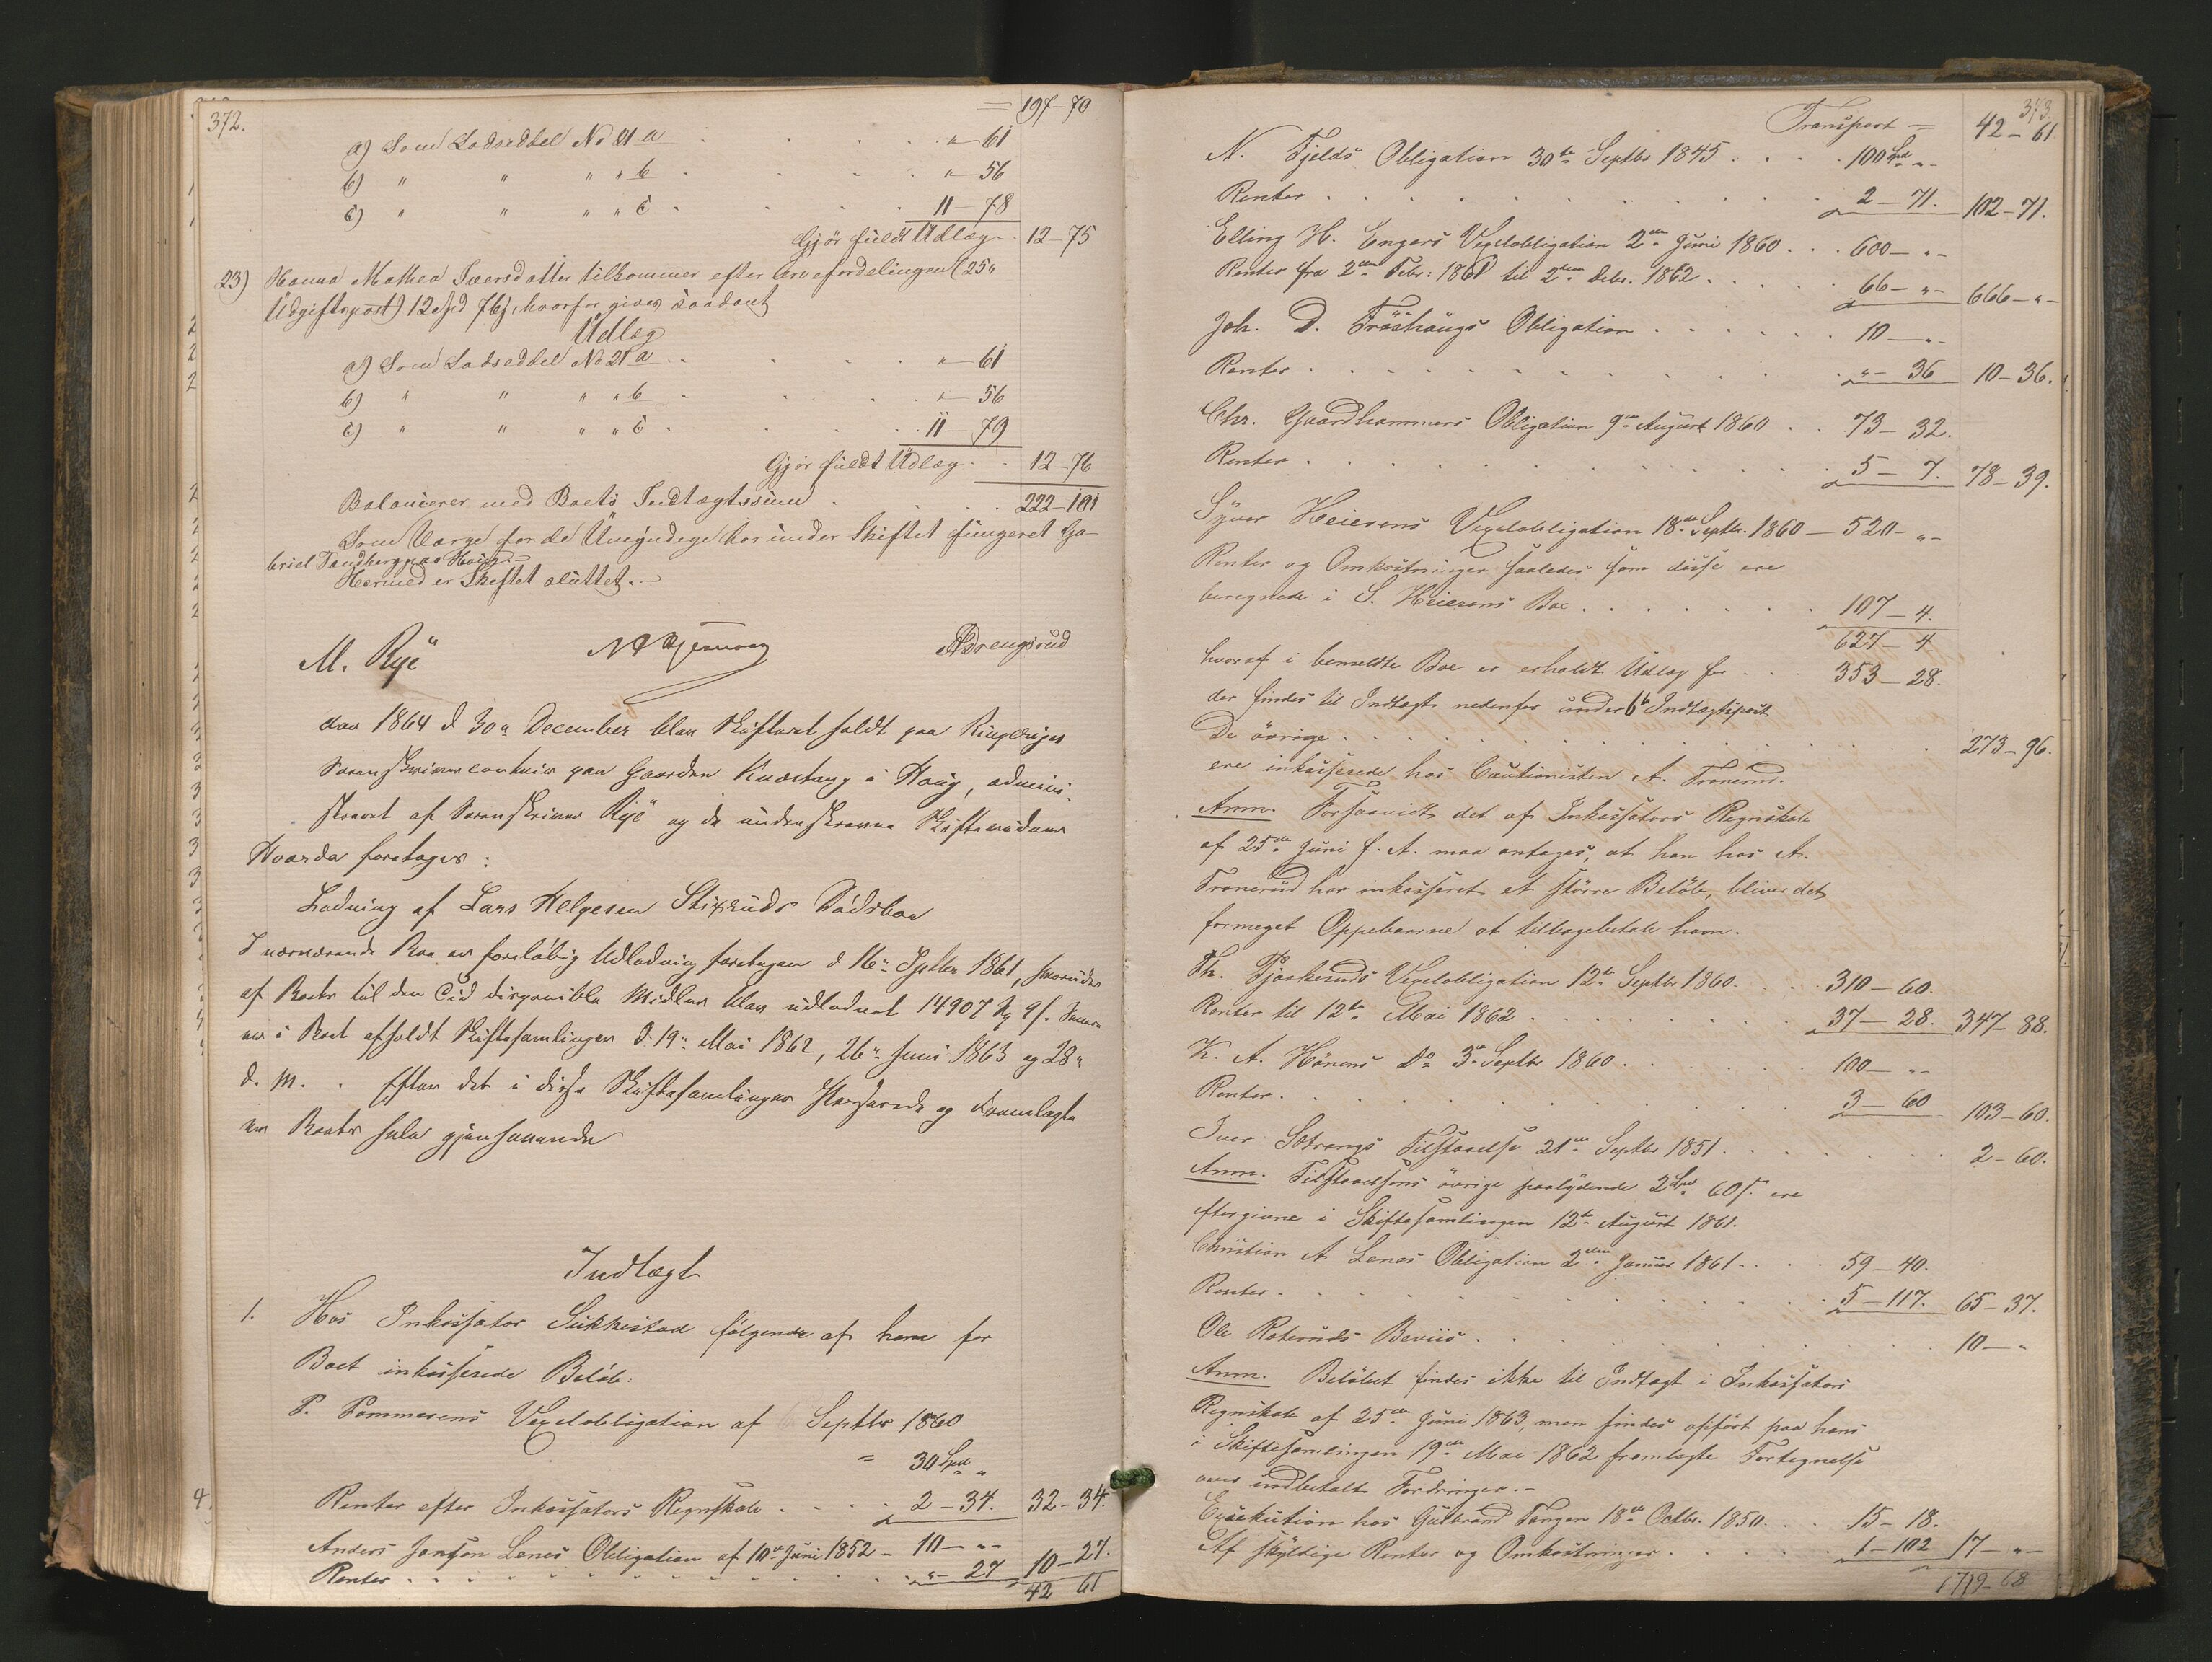 372.
= 197-70
a) Som Lodseddel No 21 a . . . . " 61
b) " " " " b . . . . " 56
c) " " " " c . . . . 11-78
Gjör fuldt Udlæg . 12-75
23) Hanna Mathea Iversdatter tilkommer efter Arvefordelingen (25"
Udgiftspost) 12 Spd 76 s hvorfor gives saadant
Udlæg
a) Som Lodseddel No 21 a . . . . " 61
b) " " " " b . . . . " 56
c) " " " " c . . . . 11-79
Gjör fuldt Udlæg . . 12-76
Balancerer med Boets Indtægtssum . . . 222-101
Som Værge for de Umyndige har under Skiftet fungeret Ga-
briel Tandberg paa Houg.
Hermed er Skiftet sluttet.-
M. Rye
Aar 1864 d 30te December blev Skifteret holdt paa Ringeriges
Sorenskrivercontoir paa Gaarden Knestang i Houg, admini-
streret af Sorenskriver Rye og de underskrevne Skiftevidner
Hvorda foretoges:
Lodning af Lars Helgesen Stixruds Dödsboe
I nærværende Boe er foreløbig Udlodning foretagen d 16de Septbr 1861, hvorunder
af Boets til den Tid disponible Midler blev udloddet 14907 9 s. Senere
er i Boet afholdt Skiftesamlinger d. 19de Mai 1862, 26de Juni 1863 og 28de
d. M. . Efter det i disse Skiftesamlinger og Fremlagte
er Boets
Indtægt
1. Hos Inkassator Sukkestad følgende af ham for
Boet inkasserede Beløb:
P. Pommerens Vexelobligation af Septbr 1860
= 30 Spd "
Renter efter Inkassators Regnskab . . . . 2-34. 32-34.
Anders Jonsen Lenes Obligation af 10de Juni 1852 - 10- "-
Renter . . . . . . . "- 27 10-27.
42 61
373.
Transport = 42-61
N. Fjelds Obligation 30te Septbr 1845 . . . 100 Spd "-
Renter . . . . . . . . 2-71. 102-71.
Elling H. Engers Vexelobligation 2den Juni 1860 . . 600- "-
Renter fra 2den Febr: 1861 til 2den Debr. 1862 . . . . 66- "- 666- "-
Joh. D. Fröshaugs Obligation . . . . . 10- "-
Renter . . . . . . . . "- 36 10-36.
Chr. Gaardhammers Obligation 9de August 1860 . . 73-32.
Renter . . . . . . . . 5-7. 78-39.
Syver Heierens Vexelobligation 18de Septbr. 1860 - 520- "-
Renter og Omkostninger saaledes som disse ere
beregnede i S. Heierens Boe . . . . . . 107-4.
627-4
hvoraf i bemeldte Boe er erholdt Udlæg for . . . 353-28.
der findes til Indtægt nedenfor under 6te Indtægtspost
De övrige . . . . . . . . . . 273-96.
ere inkasserede hos Cautionisten A. Tronerud.
Anm. Forsaavidt det af Inkassators Regnskab
af 25de Juni f. A. maa antages, at han hos A.
Tronerud har inkasseret et større Beløb, bliver det
formeget Oppebaarne at tilbagebetale ham.
Th. Tjoskeruds Vexelobligation 12te Septbr 1860 . . . 310-60.
Renter til 12te Mai 1862 . . . . . . 37-28. 347-88.
K. A. Hönens Do 3de Septbr 1860 . . . . . 100- "-
Renter . . . . . . . . 3-60 103-60.
Iver Sætrangs Tilstaaelse 21de Septbr 1851 . . . . . 2-60.
Anm. Tilstaaelsens övrige paalydende 2 Spd 60 s. ere
eftergivne i Skiftesamlingen 12te August 1861.
Christian A. Lenes Obligation 2den Januar 1861 . . . 59-40.
Renter . . . . . . . . 5-117. 65-37.
Ole Roteruds Beviis . . . . . . . . 10- "
Anm. Beløbet findes ikke til Indtægt i Inkassators
Regnskab af 25de Juni 1863, men findes opført paa hans
i Skiftesamlingen 19de Mai 1862 fremlagte Fortegnelse
over indbetalte Fordringer.-
Exekution hos Gulbrand Tangen 18de Octbr. 1850 . . . 15-18.
Af skyldige Renter og Omkostninger . . . . . 1-102 17- "-
1719-68